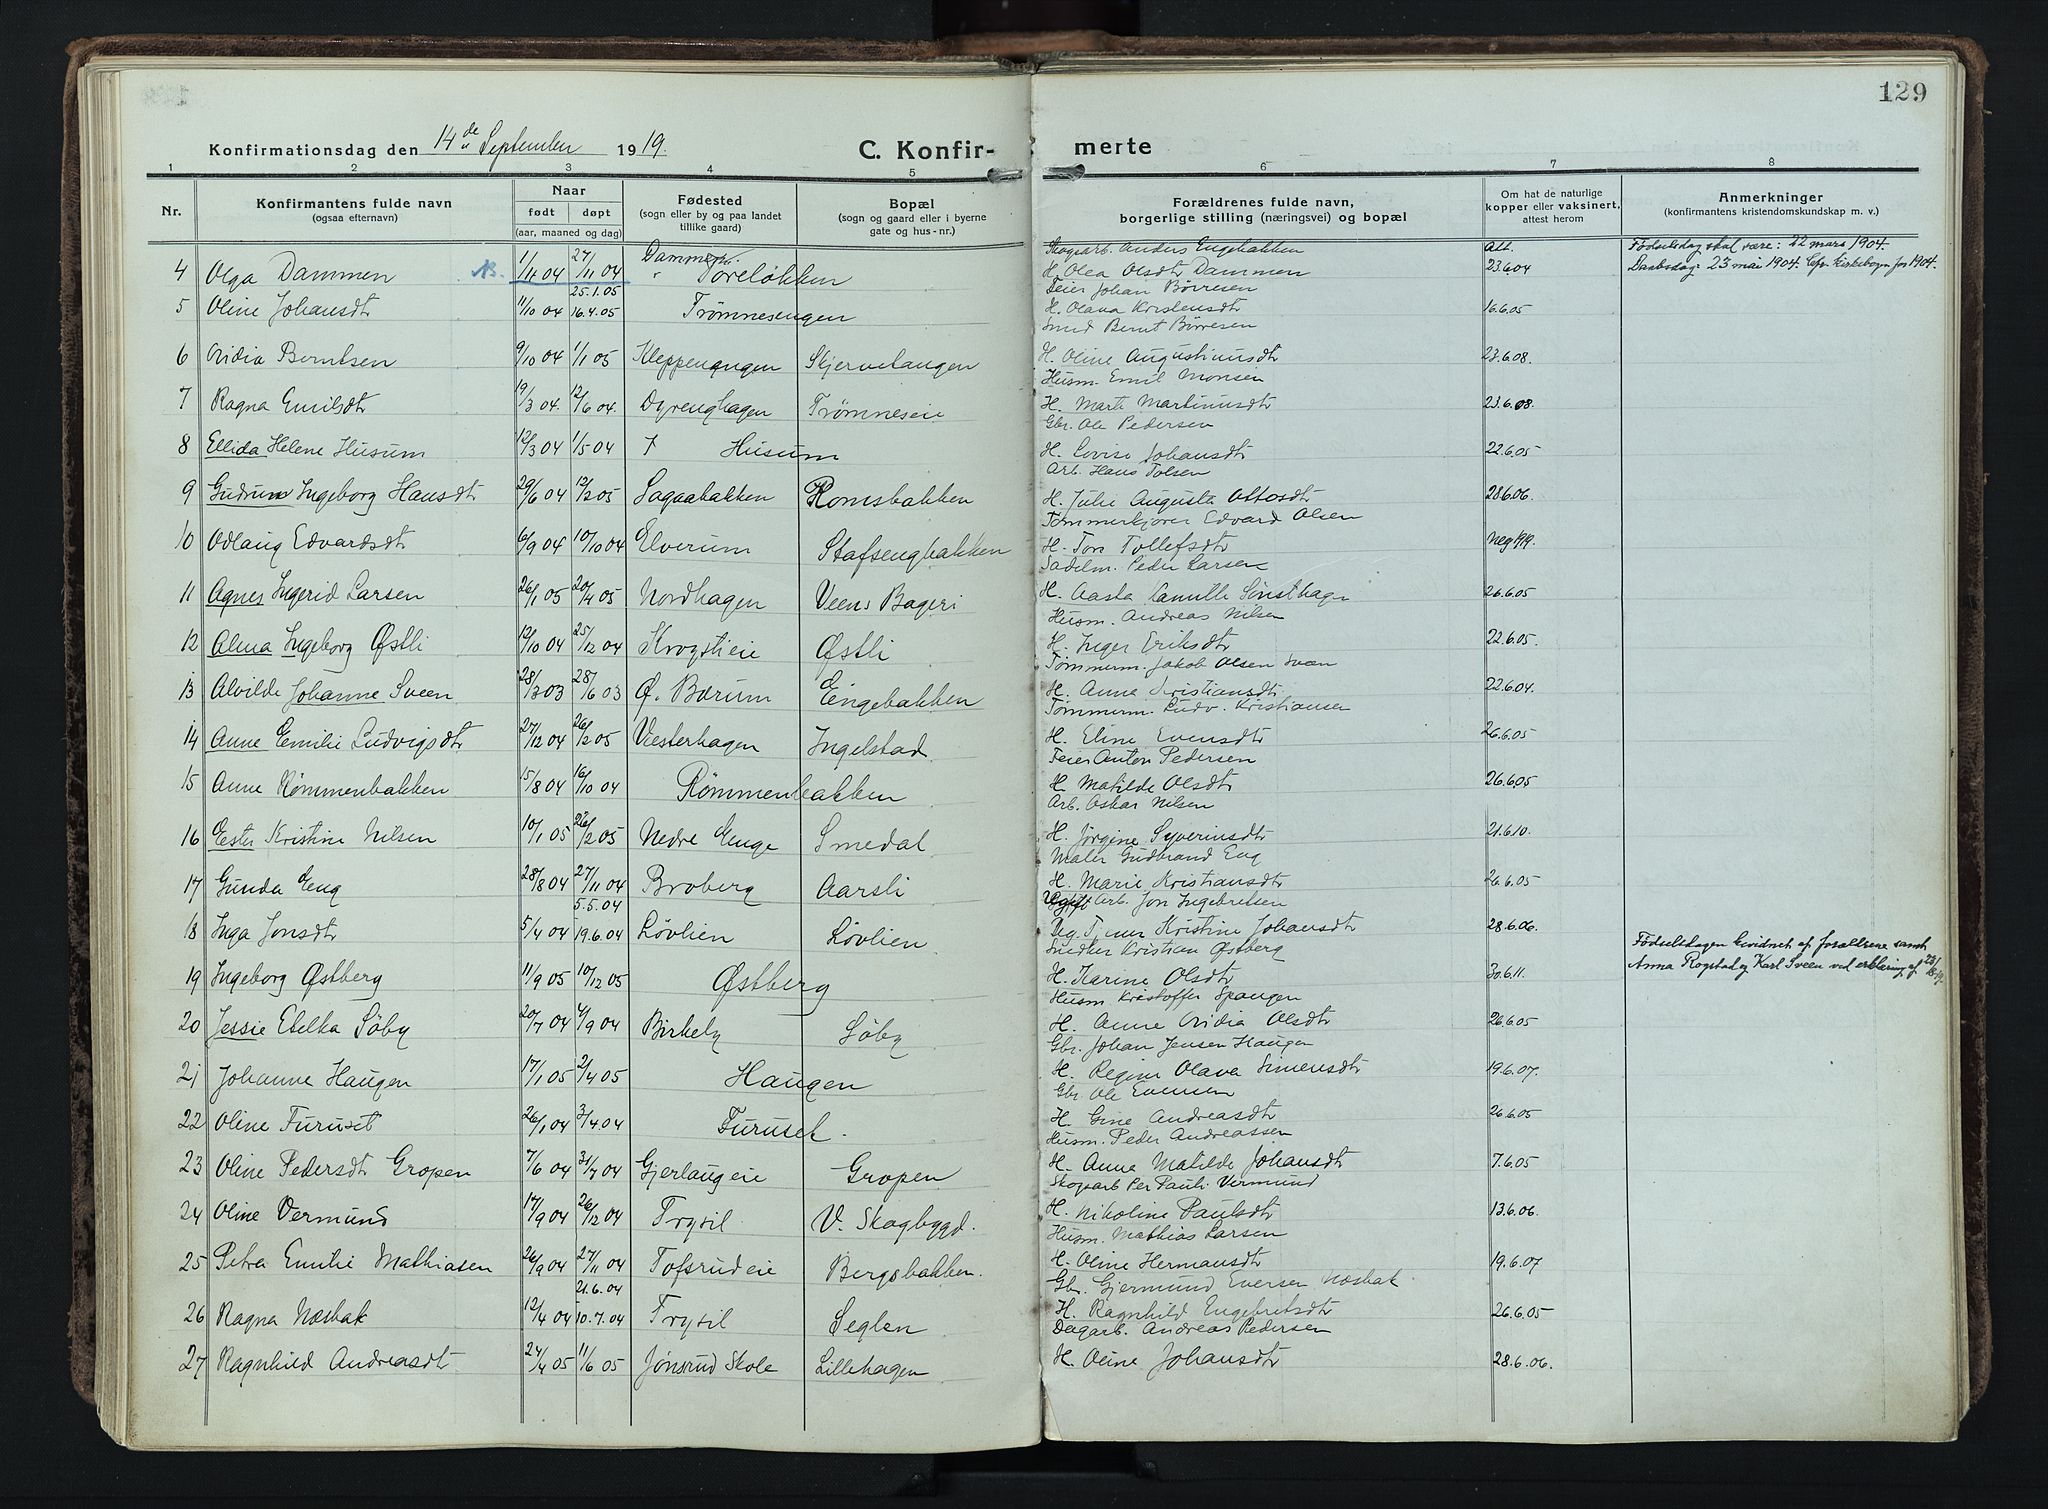 129
Konfirmationsdag den 14de September 1919.
C. Konfir- merte
1 2 3 4 5 6 7 8
Nr.
Konfirmantens fulde navn
(ogsaa efternavn)
Naar
født døpt
(aar, maaned og dag)
Fødested
(sogn eller by og paa landet
tillike gaard)
Bopæl
(sogn og gaard eller i byerne
gate og hus-nr.)
Forældrenes fulde navn,
borgerlige stilling (næringsvei) og bopæl
Om hat de naturlige
kopper eller vaksinert,
attest herom
Anmerkninger
(konfirmantens kristendomskundskap m. v.)
Skogsarb. Anders Engebakken att. Fødselsdag skal være: 22 mars 1904.
4 Olga Dammen 1/11 04 27/11 04 Toreløkken H. Olea Olsdtr Dammen 23.6.04 Daabsdag: 23 mai 1904. Cfr. Kirkebogen for 1904.
25.1.05 Feier Johan Børresen
5 Oline Johansdtr 11/10 04 16.4.05 Trømnesengen H. Olava Kristensdtr 16.6.05
Smed Bernt Børresen
6 Ovidia Berntsen 9/10 04 1/1 05 Kleppenengen Skjervelangen H. Oline Augustinusdtr 23.6.08.
Husm. Emil Monsen
7 Ragna Emilsdtr 19/3 04. 12/6 04. Dyrenghagen Trømneseie H. Marte Martinusdtr 23.6.08.
Gbr. Ole Pedersen
8 Ellida Helene Husum 12/3 04 1/5 04 Husum H. Lovise Johansdtr 22.6.05
Arb. Hans Tolsen
9 Gudrun Ingeborg Hansdtr 29/6 04 12/2 05 Sagaabakken Romsbakken H. Julie Augusta Ottosdtr 28.6.06.
Tømmerkjører Edvard Olsen
10 Odlaug Edvardsdtr 6/9 04 10/10 04 Elverum Stafsengbakken H. Ton Tollefsdtr
Sadelm. Peder Larsen
11 Agnes Ingerid Larsen 26/1 05 20/4 05 Nordhagen Veens Bageri H. Aasta Kamilla Sønsthagen 26.6.05
Husm. Andreas Nilsen
12 Alma Ingeborg Østli 12/10 04 25/12 04 Krogstieie Østli H. Inger Eriksdtr 22.6.05
Tømmerm. Jakob Olsen Sveen
13 Alvilde Johanne Sveen 28/3 03 28/6 03 Ø. Bærum Engebakken H. Anna Kristiansdtr 22.6.04.
Tømmerm. Ludv. Kristiansen
14 Anne Emilie Ludvigsdtr 27/12 04 26/2 05 Vesterhagen Ingelstad H. Eline Evensdtr 26.6.05
Feier Anton Pedersen
15 Anne Rømmenbakken 15/8 04 16/10 04 Rømmenbakken H. Matilde Olsdtr 26.6.05
Arb. Oskar Nilsen
16 Ester Kristine Nilsen 10/1 05 26/2 05 Nedre Enge Smedal H. Jørgine Syverinsdtr 21.6.10.
Maler Gudbrand Eng
17 Gunda Eng 28/8 04 27/11 04 Broberg Aarsli H. Marie Kristiansdtr 26.6.05
5.5.04 Ugift Arb. Jon Ingebretsen
18 Inga Jonsdtr 5/4 04 19.6.04 Løvlien Løvlien Kristine Johansdtr 28.6.06.
Snedker Kristian Østberg Fødselsdagen bevidnet af forældrene samt
19 Ingeborg Østberg 11/9 05 10/12 05 Østberg H. Karine Olsdtr 30.6.11. Anna Rogstad og Karl Sveen ved erklæring af
Husm. Kristoffer Spangen
20 Jessie Etelka Søby 20/7 04 4/9 04 Birkely Søby H. Anne Ovidia Olsdtr 26.6.05
Gbr. Johan Jensen Haugen
21 Johanne Haugen 17/1 05 2/4 05 Haugen H. Regine Olava Simensdtr 19.6.07.
Gbr. Ole Evensen
22 Oline Furuset 26/1 04 3/4 04 Furuset. H. Gine Andreasdtr 26.6.05
Husm. Peder Andreassen
23 Oline Pedersdtr Gropen 7/6 04 31/7 04 Gjerlaugeie Gropen H. Anna Matilde Johansdtr 7.6.05
Skogsarb Per Pauls. Vermund
24 Oline Vermund 17/9 04 26/12 04 Trysil V. Skogbygd. H. Nikoline Paulsdtr 13.6.06.
Husm. Mathias Larsen
25 Petra Emilie Mathiasen 26/9 04 27/11 04 Tofsrudeie Bergsbakken. H. Oline Hermansdtr 19.6.07
21.6.04 Gbr. Gjermund Eversen Næsbak
26 Ragna Næsbak 12/4 04 10.7.04 Trysil Seglen H. Ragnhild Engebretsdtr 26.6.05
Dagarb. Andreas Pedersen
27 Ragnhild Andreasdtr 24/4 05 11/6 05 Jønsrud Skole Lillehagen H. Oline Johansdtr 28.6.06.